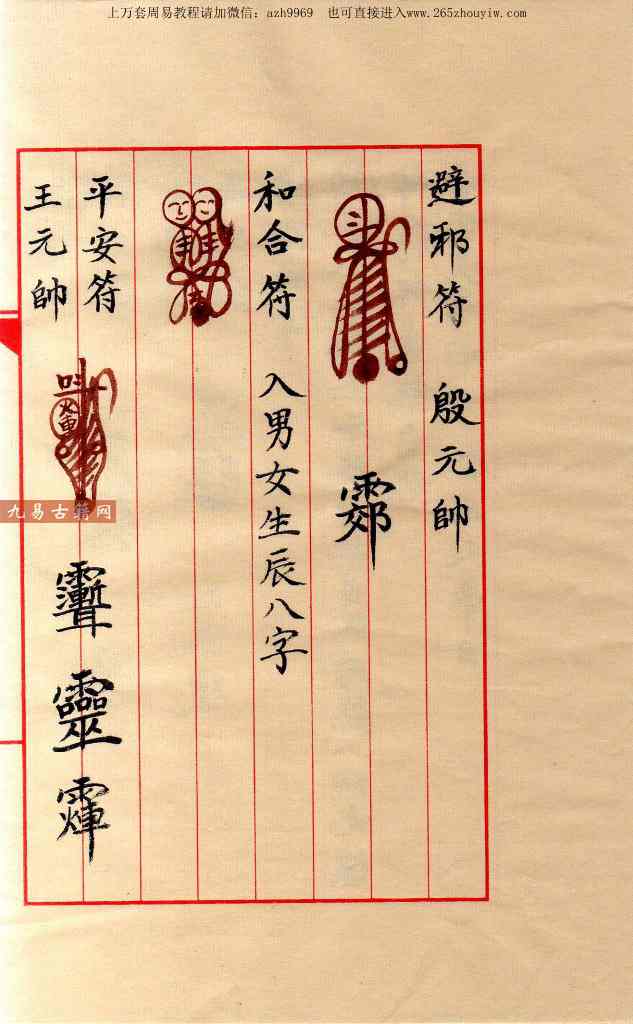 上万套周易教程请加微信：azh9969 也可直接进入www.265zhouyiw.com
避邪符 殷元帥
和合符 入男女生辰八字
平安符
王元帥
靈
九易古籍网